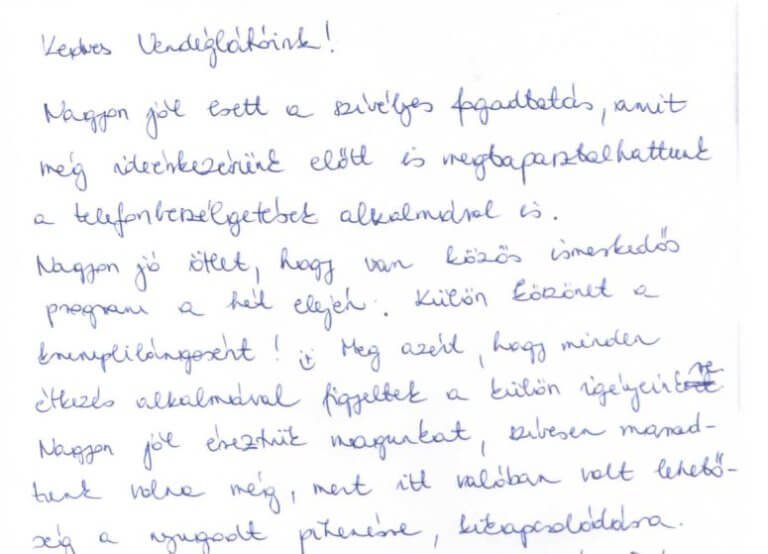 Kedves Vendéglátóink!
Nagyon jól esett a szívélyes fogadtatás, amit
még ideérkezésünk előtt is megtapasztalhattunk
a telefonbeszélgetések alkalmával is.
Nagyon jó ötlet, hogy van közös ismerkedős
program a hét elején. Külön köszönet a
krumplilángosért! Meg azért, hogy minden
étkezés alkalmával figyeltek a külön igényeinkre
Nagyon jól éreztük magunkat, szívesen marad-
tunk volna még, mert itt valóban volt lehető-
ség a nyugodt pihenésre, kikapcsolódásra.